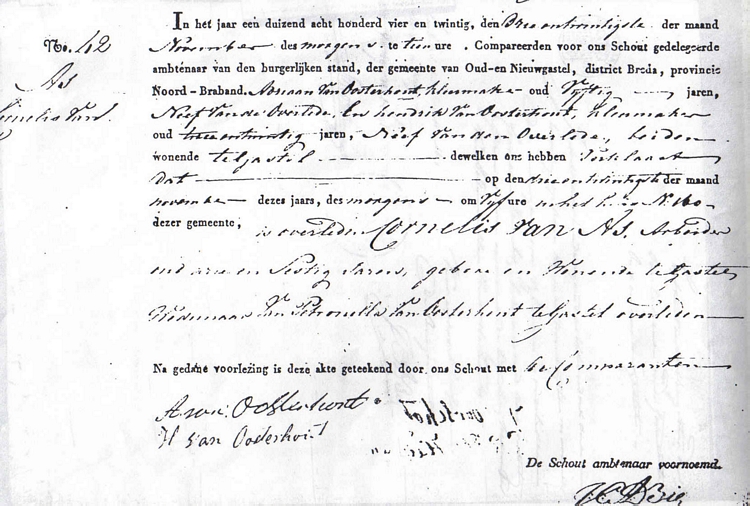 In het jaar een duizend acht honderd vier en twintig, den Drie entwintigste der maand
No. 42 November des morgens te tien ure . Compareerden voor ons Schout gedelegeerde
ambtenaar van den burgerlijken stand, der gemeente van Oud-en Nieuwgastel, district Breda, provincie
As
Noord-Braband. Adriaan Van Oosterhout kleermaker oud Vyftig jaren,
Cornelis Van
Neef Van de Overlede, En hendrik Van Oosterhout, kleermaker
oud jaren, Neef Van den Overlede, beiden
wonende te Gastel dewelken ons hebben Verklaart
dat op den drie entwintigste der maand
november dezes jaars, des morgens om Vyf ure in het huis N. 160
dezer gemeente,
is overleden Cornelis Van As. Arbeider
oud drie en Sestig Jaren, geboren en Wonende te Gastel
Wedenaar Van Petronella Van Oosterhout te Gastel overleden
Na gedane voorlezing is deze akte geteekend door ons Schout met de Comparanten
A van Oosterhout
H van Oosterhout
De Schout ambtenaar voornoemd.